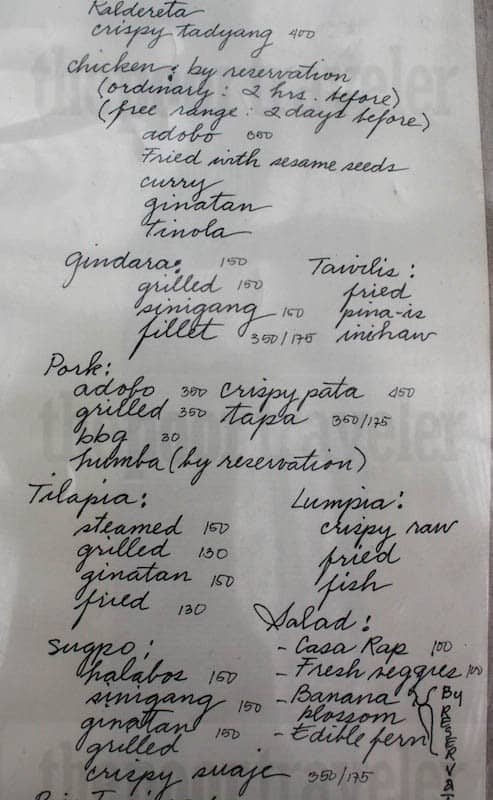 Kaldereta
crispy tadyang 400
chicken: by reservation
(ordinary: 2 hrs. before)
(free range: 2 days before)
adobo 350
Fried with sesame seeds
curry
ginatan
Tinola
Gindara: 150
grilled 150
sinigang 150
fillet 350/175
Tawilis:
fried
pina-is
inihaw
Pork:
adobo 350
grilled 350
bbq 30
humba (by reservation)
crispy pata 450
tapa 350/175
Tilapia:
steamed 150
grilled 130
ginatan 150
fried 130
Lumpia:
crispy raw
fried
fish
Sugpo:
halabos 150
sinigang 150
ginatan 150
grilled
crispy suaje 350/175
Salad:
- Casa Rap 100
- Fresh veggies 100
- Banana blossom
- Edible fern
By